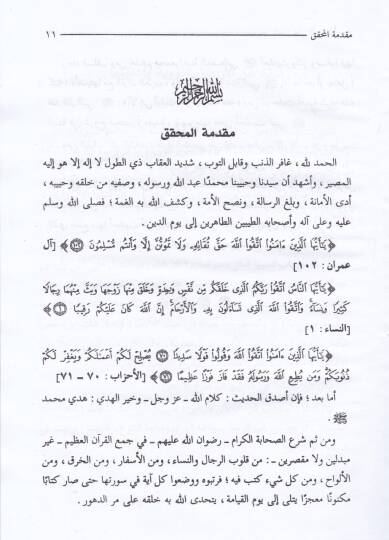 مقدمة المحقق ١١
بسم الله الرحمن الرحيم
مقدمة المحقق
الحمد لله ، غافر الذنب وقابل التوب ، شديد العقاب ذي الطول لا إله إلا هو إليه
المصير ، وأشهد أن سيدنا وحبيبنا محمدًا عبد الله ورسوله ، وصفيه من خلقه وحبيبه ،
أدى الأمانة ، وبلغ الرسالة ، ونصح الأمة ، وكشف الله به الغمة ؛ فصلى الله وسلم
عليه وعلى آله وأصحابه الطيبين الطاهرين إلى يوم الدين .
﴿يَٰٓأَيُّهَا ٱلَّذِينَ ءَامَنُوا۟ ٱتَّقُوا۟ ٱللَّهَ حَقَّ تُقَاتِهِۦ وَلَا تَمُوتُنَّ إِلَّا وَأَنتُم مُّسْلِمُونَ ١٠٢﴾ [آل
عمران : ١٠٢]
﴿يَٰٓأَيُّهَا ٱلنَّاسُ ٱتَّقُوا۟ رَبَّكُمُ ٱلَّذِى خَلَقَكُم مِّن نَّفْسٍ وَٰحِدَةٍ وَخَلَقَ مِنْهَا زَوْجَهَا وَبَثَّ مِنْهُمَا رِجَالًا
كَثِيرًا وَنِسَآءً وَٱتَّقُوا۟ ٱللَّهَ ٱلَّذِى تَسَآءَلُونَ بِهِۦ وَٱلْأَرْحَامَ إِنَّ ٱللَّهَ كَانَ عَلَيْكُمْ رَقِيبًا ١﴾
[النساء : ١]
﴿يَٰٓأَيُّهَا ٱلَّذِينَ ءَامَنُوا۟ ٱتَّقُوا۟ ٱللَّهَ وَقُولُوا۟ قَوْلًا سَدِيدًا ٧٠ يُصْلِحْ لَكُمْ أَعْمَٰلَكُمْ وَيَغْفِرْ لَكُمْ
ذُنُوبَكُمْ وَمَن يُطِعِ ٱللَّهَ وَرَسُولَهُۥ فَقَدْ فَازَ فَوْزًا عَظِيمًا ٧١﴾ [الأحزاب : ٧٠ - ٧١]
أما بعد ؛ فإن أصدق الحديث : كلام الله ـ عز وجل ـ وخير الهدي : هدي محمد
ﷺ .
ومن ثم شرع الصحابة الكرام ـ رضوان الله عليهم ـ في جمع القرآن العظيم ـ غير
مبدلين ولا مقصرين ـ : من قلوب الرجال والنساء ، ومن الأسفار ، ومن الخرق ، ومن
الألواح ، ومن كل شيء كتب فيه ؛ فرتبوه ووضعوا كل آية في سورتها حتى صار كتابًا
مكنونًا معجزًا يتلى إلى يوم القيامة ، يتحدى الله به خلقه على مر الدهور .